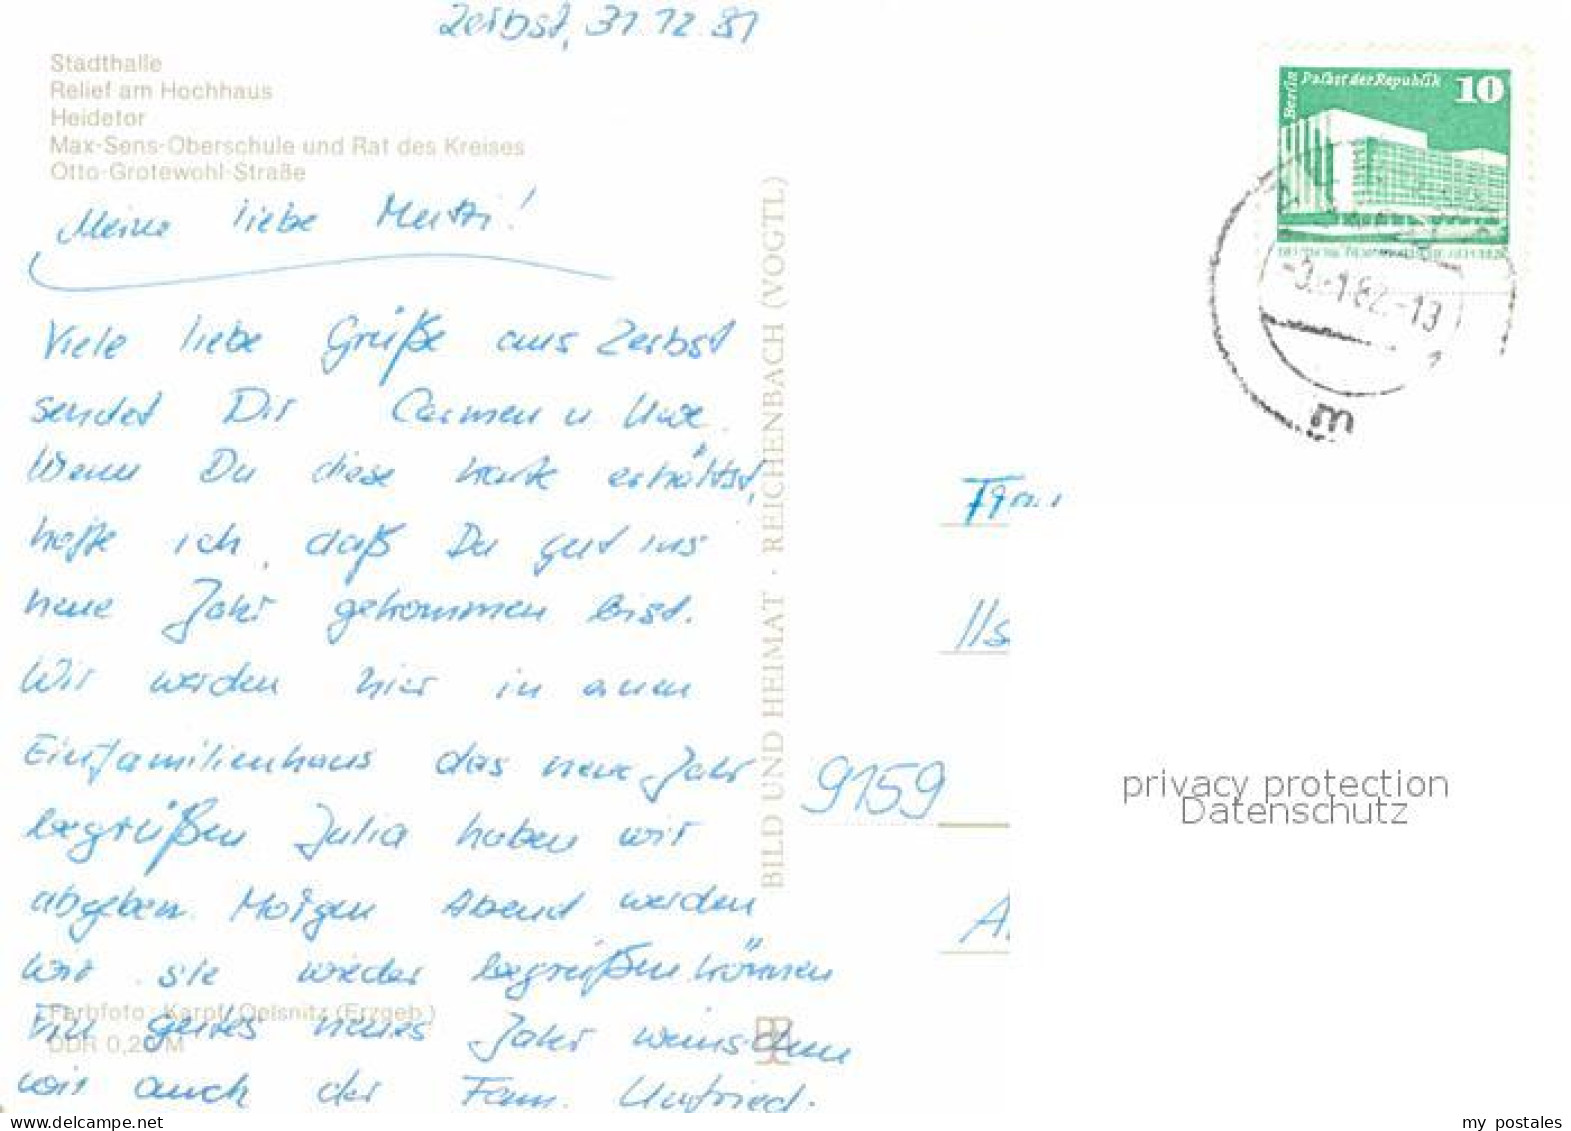 Zerbst, 31.12.81
Stadthalle
Relief am Hochhaus
Heidetor
Max-Sens-Oberschule und Rat des Kreises
Otto-Grotewohl-Straße
Meine liebe Mutti!
Viele liebe Grüße aus Zerbst
sendet Dir Carmen u Uwe.
Wenn Du diese Karte erhältst,
hoffe ich, daß Du gut ins
neue Jahr gekommen bist.
Wir werden hier in einem
Einfamilienhaus das neue Jahr
begrüßen Julia haben wir
abgeben. Morgen Abend werden
wir sie wieder begrüßen können
Ein gutes neues Jahr wünschen
wir auch der Fam. Unfried.
Farbfoto: Karpf, Oelsnitz (Erzgeb.)
DDR 0,20 M
BILD UND HEIMAT · REICHENBACH (VOGTL)
Berlin Palast der Republik 10
-1.82.-19
m
9159
privacy protection
Datenschutz
my postales